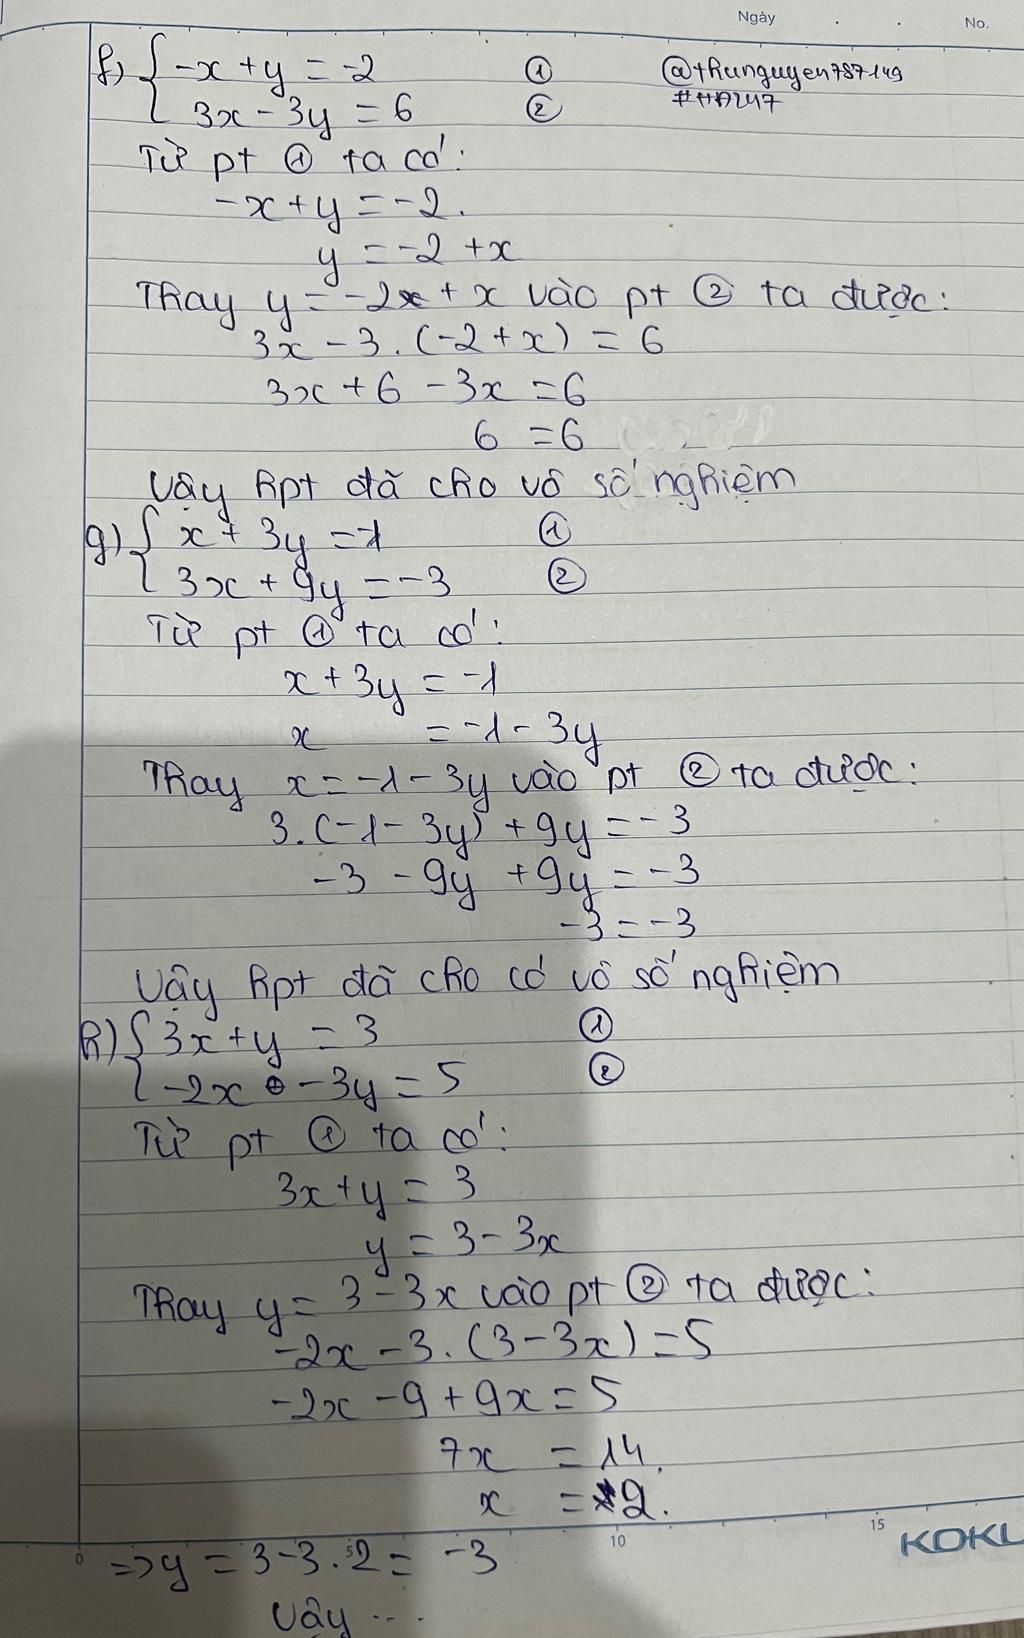 Ngày . . No.
f) { -x + y = -2 ① @thunguyen787149
3x - 3y = 6 ② #HA247
Từ pt ① ta có:
-x + y = -2.
y = -2 + x
Thay y = -2 + x vào pt ② ta được:
3x - 3. (-2 + x) = 6
3x + 6 - 3x = 6
6 = 6
Vậy hpt đã cho vô số nghiệm
g) { x + 3y = -1 ①
3x + 9y = -3 ②
Từ pt ① ta có:
x + 3y = -1
x = -1 - 3y
Thay x = -1 - 3y vào pt ② ta được:
3. (-1 - 3y) + 9y = -3
-3 - 9y + 9y = -3
-3 = -3
Vậy hpt đã cho có vô số nghiệm
h) { 3x + y = 3 ①
-2x - 3y = 5 ②
Từ pt ① ta có:
3x + y = 3
y = 3 - 3x
Thay y = 3 - 3x vào pt ② ta được:
-2x - 3. (3 - 3x) = 5
-2x - 9 + 9x = 5
7x = 14.
x = 2.
0 5 10 15 KOKU
=> y = 3 - 3. 2 = -3
Vậy ...